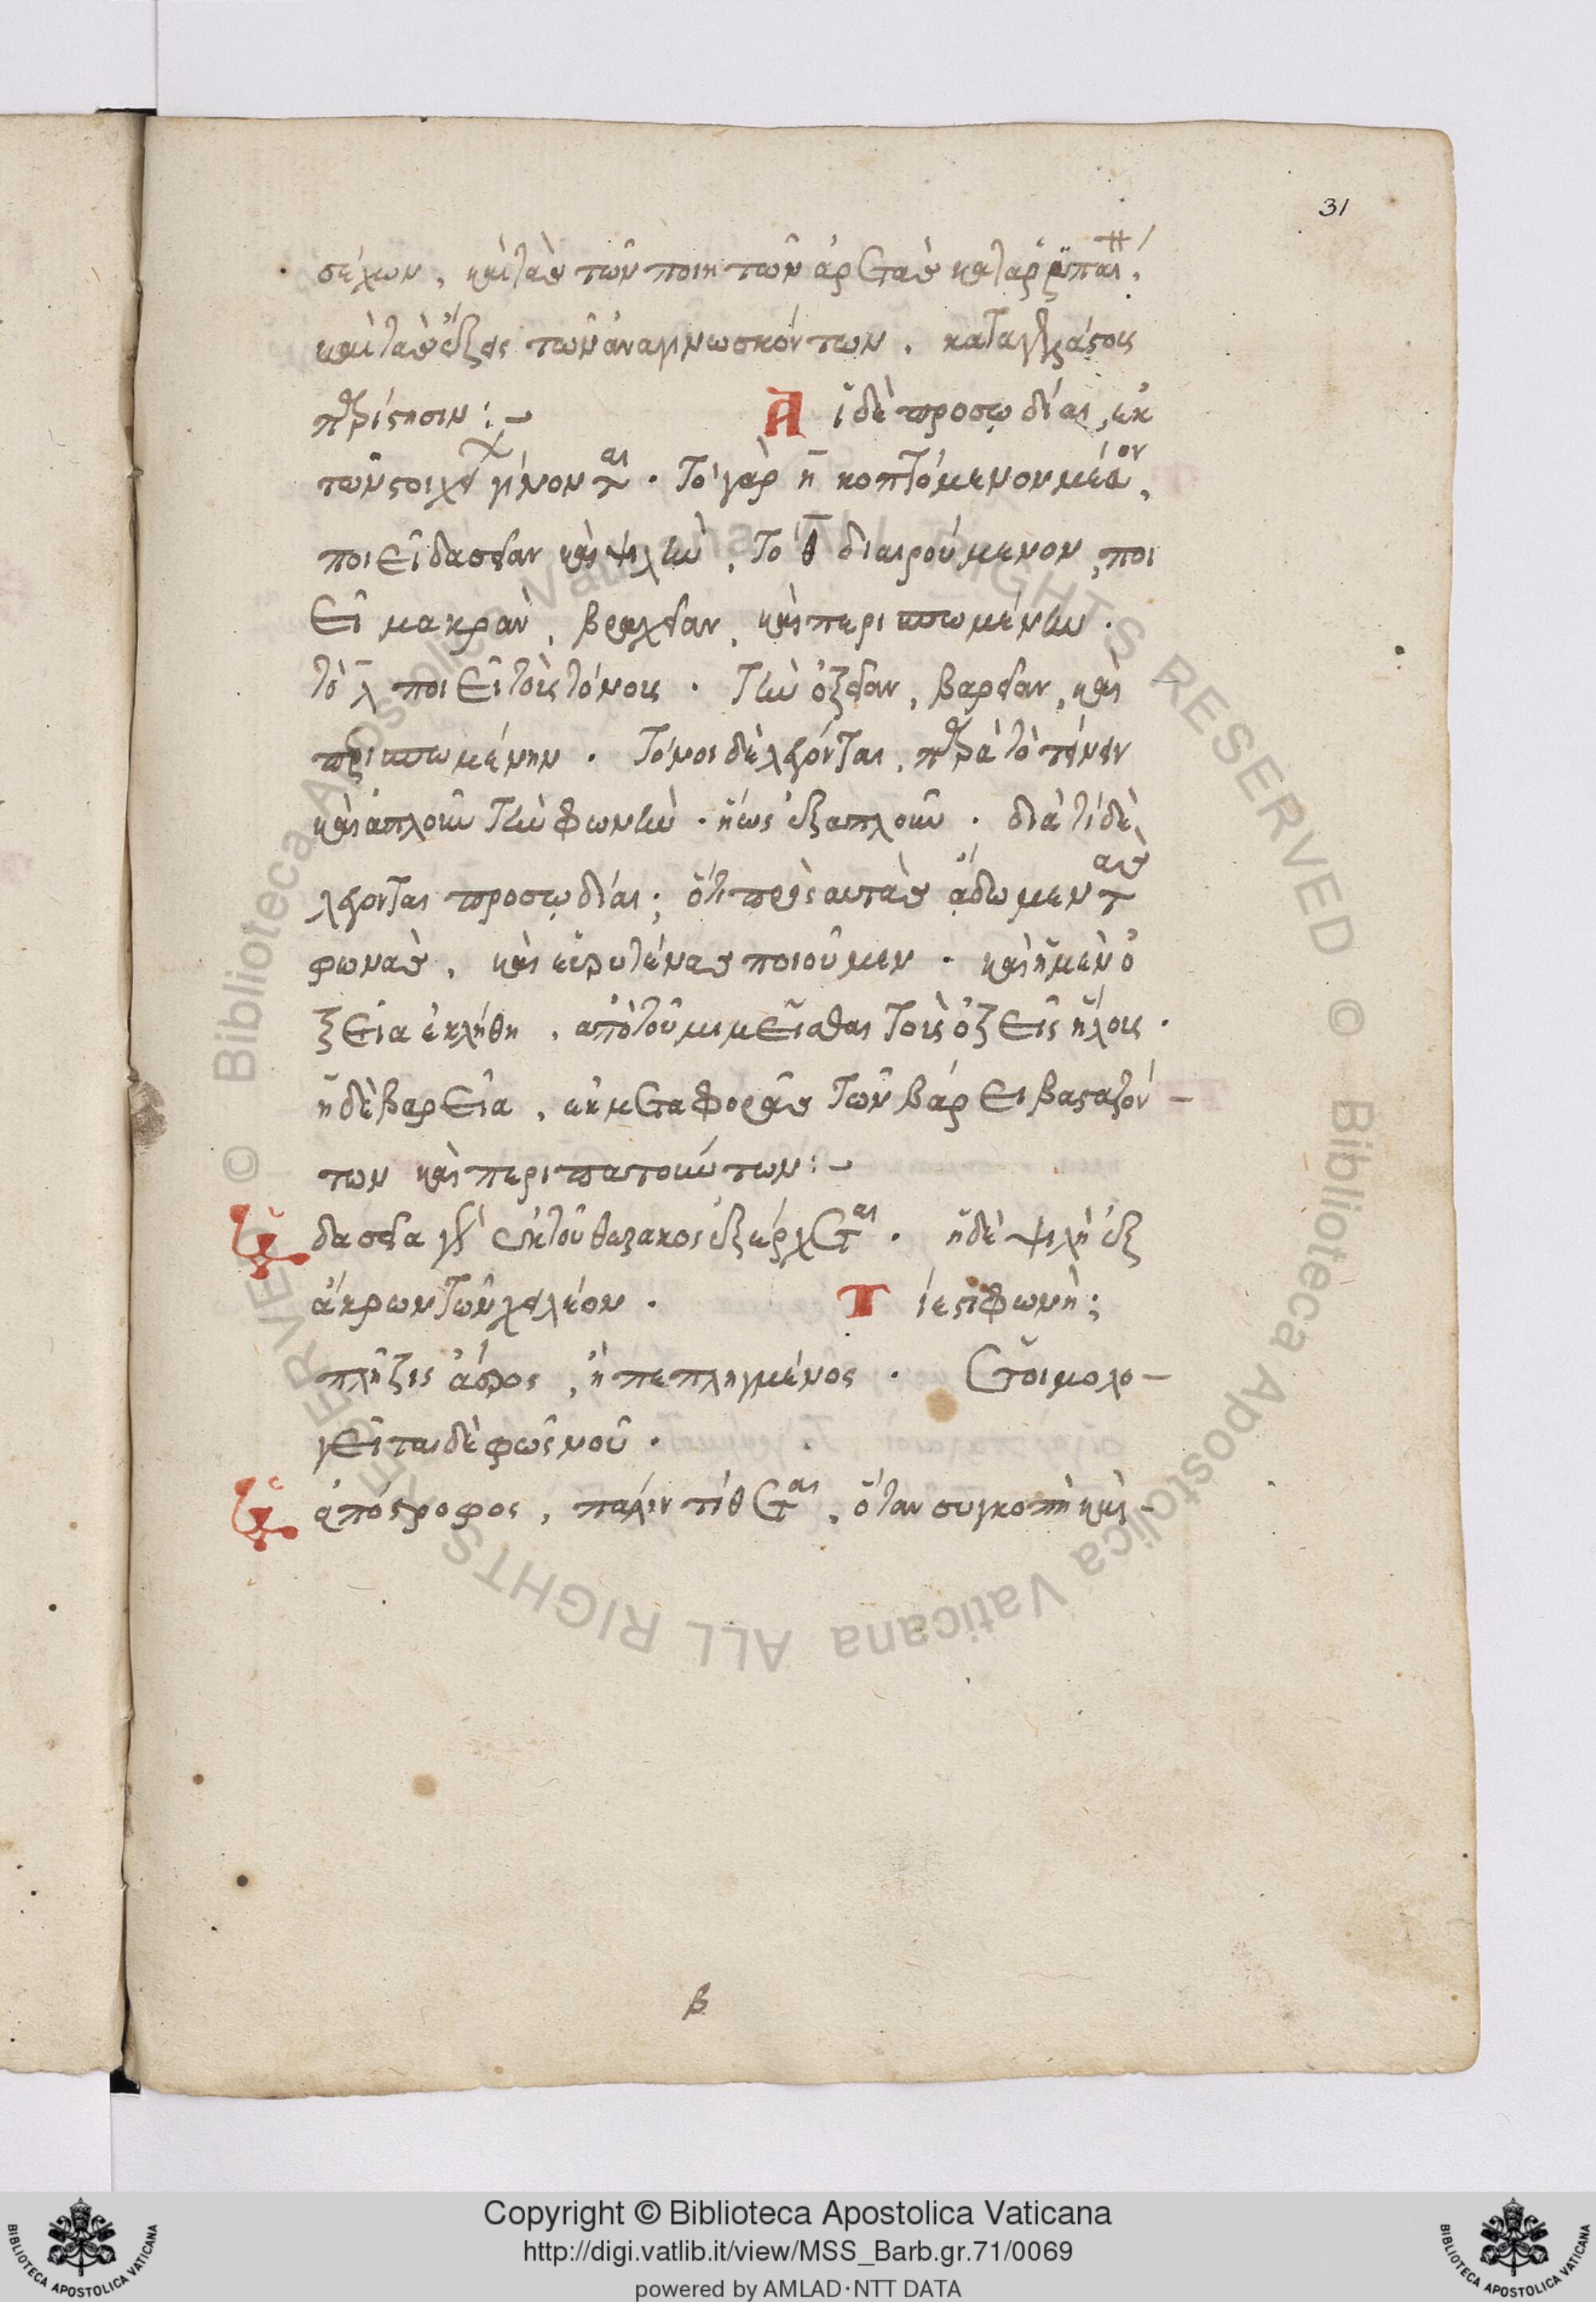 31
καὶ τὰς τῶν ποιητῶν ἀρετὰς
καὶ τὰς ἕξεις τῶν ἀναγινωσκόντων.
παρίστησιν:~ Αἱ δὲ προσῳδίαι, ἐκ
τῶν στοιχείων γίνονται. Τὸ γὰρ η κοπτόμενον μέσον,
ποιεῖ δασεῖαν καὶ ψιλὴν, Τὸ θ διαιρούμενον, ποι
εῖ μακρὰν, βραχεῖαν, καὶ περισπωμένην.
τὸ λ ποιεῖ τοὺς τόνους. Τὴν ὀξεῖαν, βαρεῖαν, καὶ
περισπωμένην. Τόνοι δὲ λέγονται, παρὰ τὸ τείνειν
καὶ ἁπλοῦν τὴν φωνὴν. ἢ ὡς ἐξαπλοῦν. διὰ τί δὲ
λέγονται προσῳδίαι; ὅτι πρὸς αὐτὰς ᾄδωμεν τὰς
φωνὰς, καὶ ποιοῦμεν. καὶ ἡ μὲν ὀ
ξεῖα ἐκλήθη, ἀπὸ τοῦ μιμεῖσθαι τοῖς ὀξεῖς ἥλοις.
ἡ δὲ βαρεῖα, ἐκ μεταφορᾶς τῶν βάρει βασταζόν-
των καὶ περιπατούντων:~
Ἡ δασεῖα γὰρ ἐκ τοῦ θώρακος ἐξέρχεται. ἡ δὲ ψιλὴ ἐξ
ἄκρων τῶν χειλέον. Τί ἐστι φωνή;
πλῆξις ἀέρος, ἢ πεπληγμένος. Ἐτοιμολο-
γεῖται δὲ φῶς νοῦ.
Ἡ ἀπόστροφος, πάλιν τίθεται, ὅταν συγκοπὴ καὶ-
β
Copyright © Biblioteca Apostolica Vaticana
http://digi.vatlib.it/view/MSS_Barb.gr.71/0069
powered by AMLAD·NTT DATA